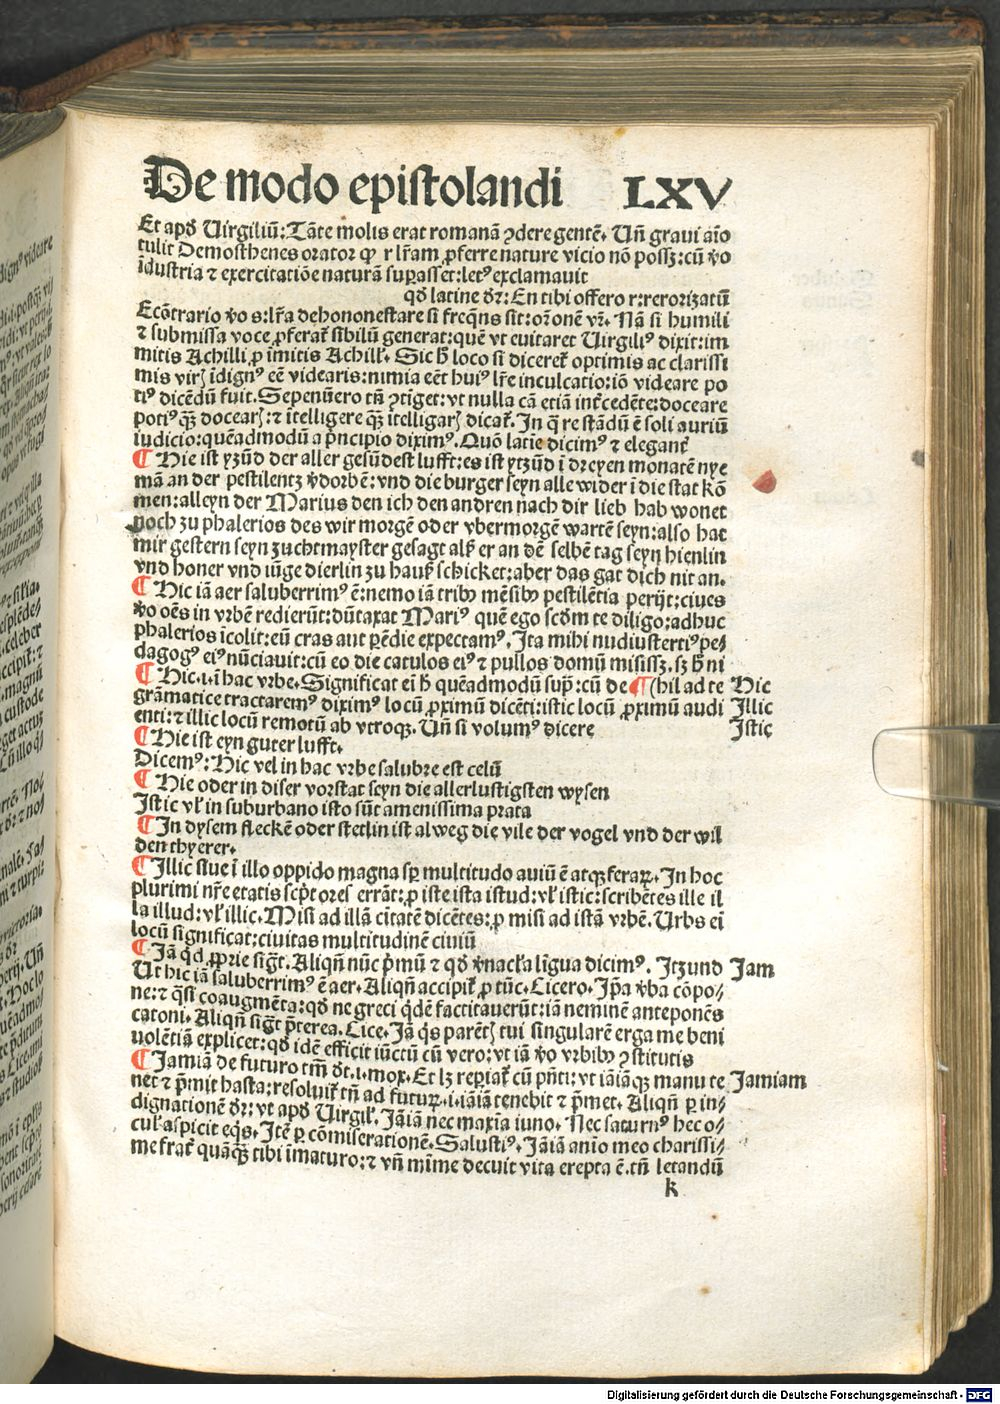 De modo epistolandi LXV
Et apđ Uirgiliū: Tāte molis erat romanā ꝯdere gentē. Uñ gravi aīo
tulit Demosthenes orator ꝙ r lr̄am ꝓferre nature vicio nō possꝫ: cū ꝟo
īdustria ⁊ exercitatiōe naturā suꝑasset: letꝰ exclamavit
qđ latine dr̄: En tibi offero r: rerorizatū
Ecōtrario ꝟo s: lr̄a dehononestare si freq̄ns sit: or̄onē vr̄. Nā si humili
⁊ submissa voce ꝓferať sibilū generat: quē vt evitaret Uirgiliꝰ dixit: im
mitis Achilli ꝓ īmitis Achilľ. Sic h̄ loco si dicereť optimis ac clarissi
mis virꝭ īdignꝰ eē videaris: nimia eēt huiꝰ lr̄e inculcatio: iō videare po
tiꝰ dicēdū fuit. Sepenūero tn̄ ꝯtīget: vt nulla cā etiā inťcedēte: doceare
potiꝰ qꝫ̄ docearꝭ: ⁊ ītelligere qꝫ̄ ītelligarꝭ dicať. In q̄ re stādū ē soli auriū
iudicio: quēadmodū a pͥncipio diximꝰ. Quō latīe dicimꝰ ⁊ eleganť
¶ Hie ist yzūd der aller gesūdest lufft: es ist ytzūd ī dreyen monatē nye
mā an der pestilentz ꝟdorbē: vnd die burger seyn alle wider ī die stat kō
men: alleyn der Marius den ich den andren nach dir lieb hab wonet
noch zu phalerios des wir morgē oder vbermorgē wartē seyn: also hat
mir gestern seyn zuchtmayster gesagt als er an dē selbē tag seyn hienlin
vnd honer vnd iūge dierlin zu hauß schicket: aber das gat dich nit an.
¶ Hic iā aer saluberrimꝰ ē: nemo iā tribꝰ mēsibꝰ pestilētia perijt: ciues
ꝟo oēs in vrbē redierūt: dūtaxat Mariꝰ quē ego scđm te diligo: adhuc
phalerios īcolit: eū cras aut ꝑēdie expectamꝰ. Ita mihi nudiustertiꝰ pe-
dagogꝰ eiꝰ nūciauit: cū eo die catulos eiꝰ ⁊ pullos domū misissꝫ. sꝫ h̄ ni
¶ Hic .i. ī hac vrbe. Significat eī h̄ quēadmodū supͣ: cū de ¶ (hil ad te Hic
grāmatice tractaremꝰ diximꝰ locū ꝓximū dicēti: istic locū ꝓximū audi Illic
enti: ⁊ illic locū remotū ab vtroqꝫ. Uñ si volumꝰ dicere Istic
¶ Hie ist eyn guter lufft.
Dicemꝰ: Hic vel in hac vrbe salubre est celū
¶ Hie oder in diser vorstat seyn die allerlustigsten wysen
Istic vľ in suburbano isto sūt amenissima prata
¶ In dysem fleckē oder stetlin ist alweg die vile der vogel vnd der wil
den thyerer.
¶ Illic siue ī illo oppido magna sꝑ multitudo auiū ē atqꝫ ferarꝝ. In hoc
plurimi nr̄e etatis scpͥtores errāt: ꝓ iste ista istud: vľ istic: scribētes ille il
la illud: vľ illic. Misi ad illā citatē dicētes: ꝓ misi ad istā vrbē. Urbs eī
locū significat: ciuitas multitudinē ciuiū
¶ Jā qđ ꝓprie sigt̄. Aliqñ nūc pͥmū ⁊ qđ ꝟnacľa līgua dicimꝰ. Itzund Jam
Ut hic iā saluberrimꝰ ē aer. Aliqñ accipiť ꝓ tūc. Cicero. Ipͣa ꝟba cōpo-
ne: ⁊ qͣsi coaugmēta: qđ ne greci qͥdē factitauerūt: iā neminē anteponēs
catoni. Aliqñ sigt̄ pͥterea. Cice. Jā qͥs parētꝭ tui singularē erga me beni
uolētiā explicet: qđ idē efficit iūctū cū vero: vt iā ꝟo vrbibꝰ ꝯstitutis
¶ Jamiā de futuro tm̄ dr̄ .i. mox. Et lꝫ reꝑiať cū pn̄ti: vt iāiāqꝫ manu te Jamiam
net ⁊ pͥmit hasta: resoluiť tn̄ ad futuꝝ. i. iāiā tenebit ⁊ pͥmet. Aliqñ ꝑ in-
dignationē dr̄: vt apđ Uirgiľ. Jāiā nec maxīa iuno. Nec saturnꝰ hec o-
culꝭ aspicit eqͥs. Itē ꝑ cōmiserationē. Salustiꝰ. Jāiā anīo meo charissi-
me frať quāqꝫ̄ tibi īmaturo: ⁊ vñ mīme decuit vita erepta ē. tn̄ letandū
k
Digitalisierung gefördert durch die Deutsche Forschungsgemeinschaft - DFG